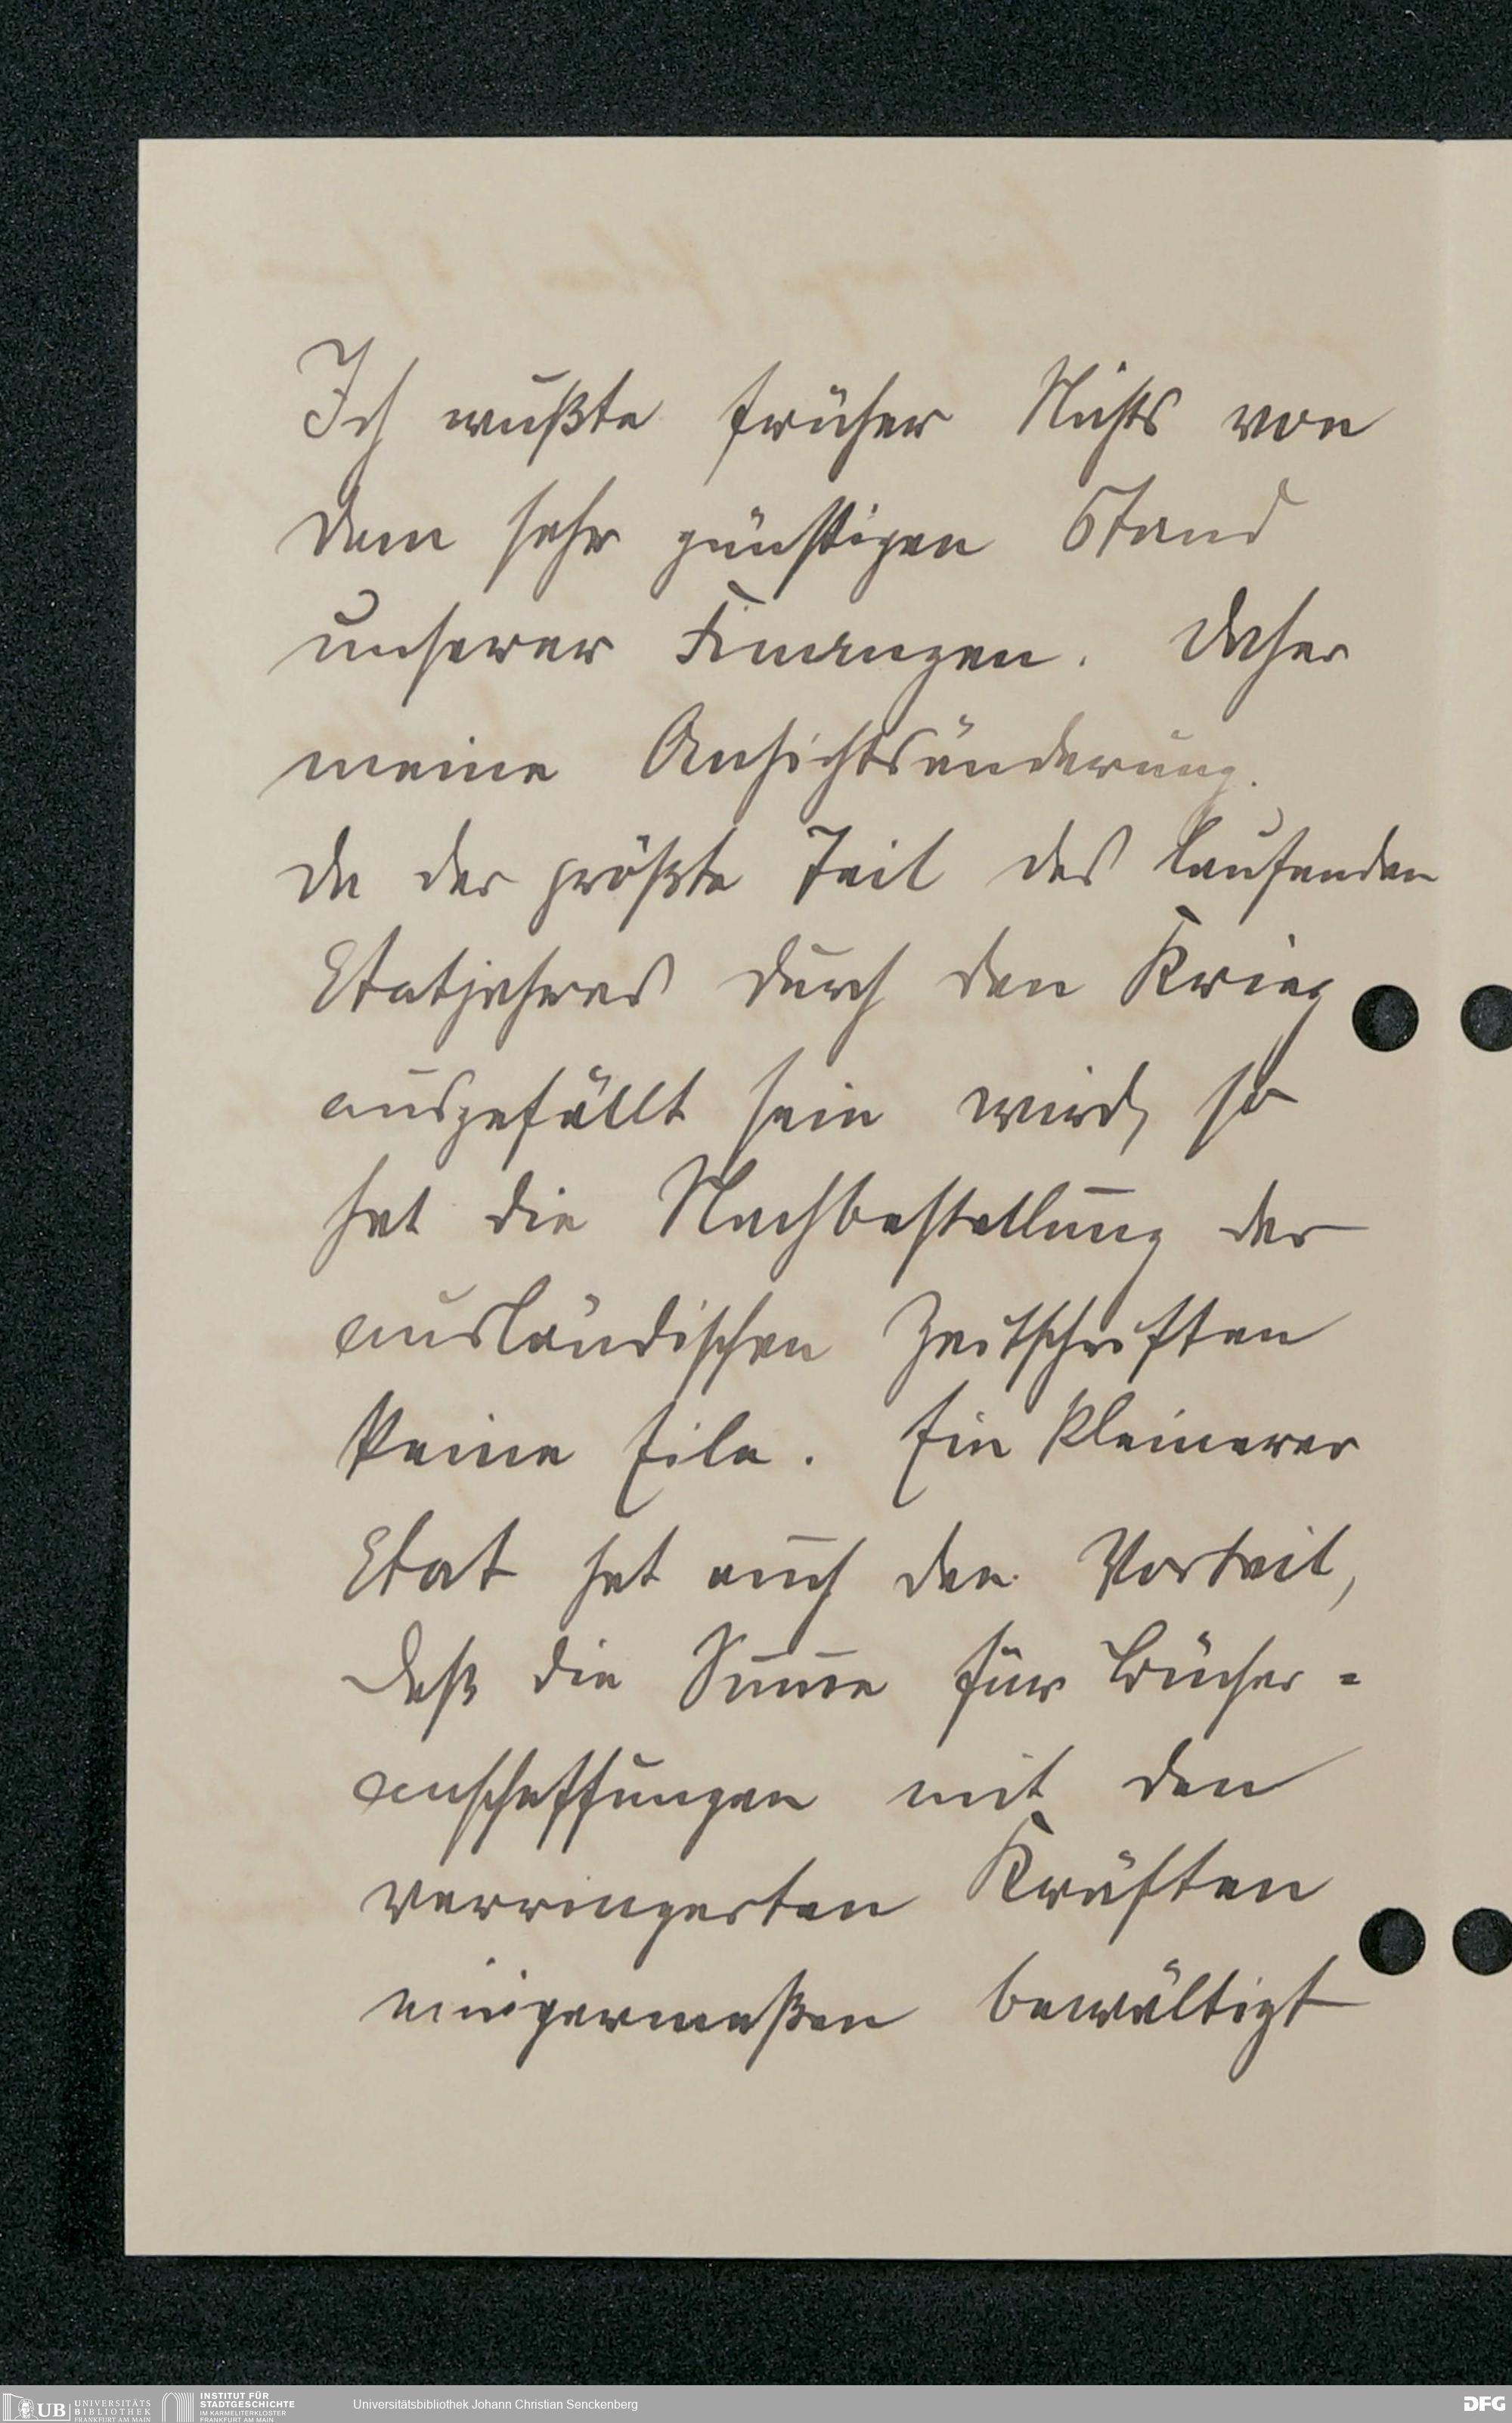 Ich wußte früher Nichts von
dem sehr günstigen Stand
unserer Finanzen. Daher
meine Ansichtsänderung.
Da der größte Teil des laufenden
Etatjahres durch den Krieg
ausgefüllt sein wird, so
hat die Nachbestellung der
ausländischen Zeitschriften
keine Eile. Ein kleinerer
Etat hat auch den Vorteil,
daß die Sum̄e für Bücher=
anschaffungen mit den
verringerten Kräften
einigermaßen bewältigt
UB UNIVERSITÄTS BIBLIOTHEK FRANKFURT AM MAIN
INSTITUT FÜR STADTGESCHICHTE IM KARMELITERKLOSTER FRANKFURT AM MAIN
Universitätsbibliothek Johann Christian Senckenberg
DFG